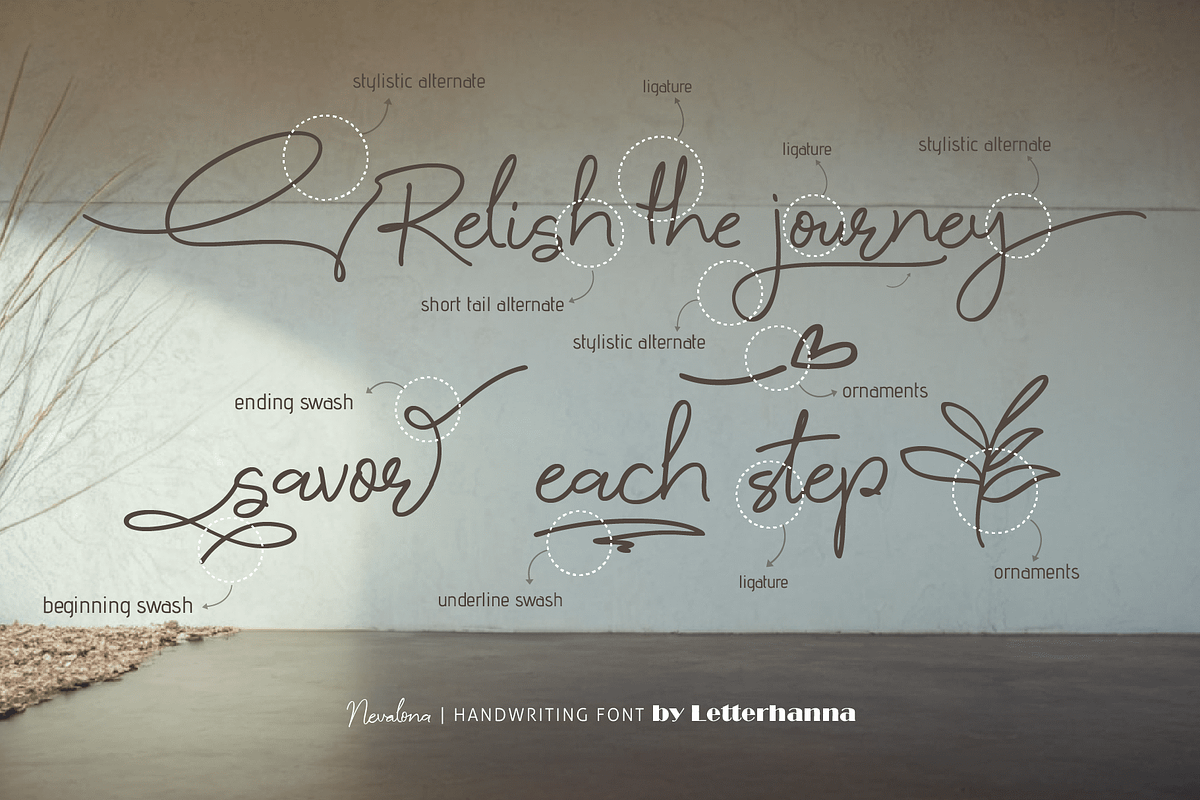 stylistic alternate
ligature
ligature
stylistic alternate
Relish the journey
short tail alternate
stylistic alternate
ornaments
ending swash
savor each step
beginning swash
underline swash
ligature
ornaments
Nevalona | HANDWRITING FONT by Letterhanna